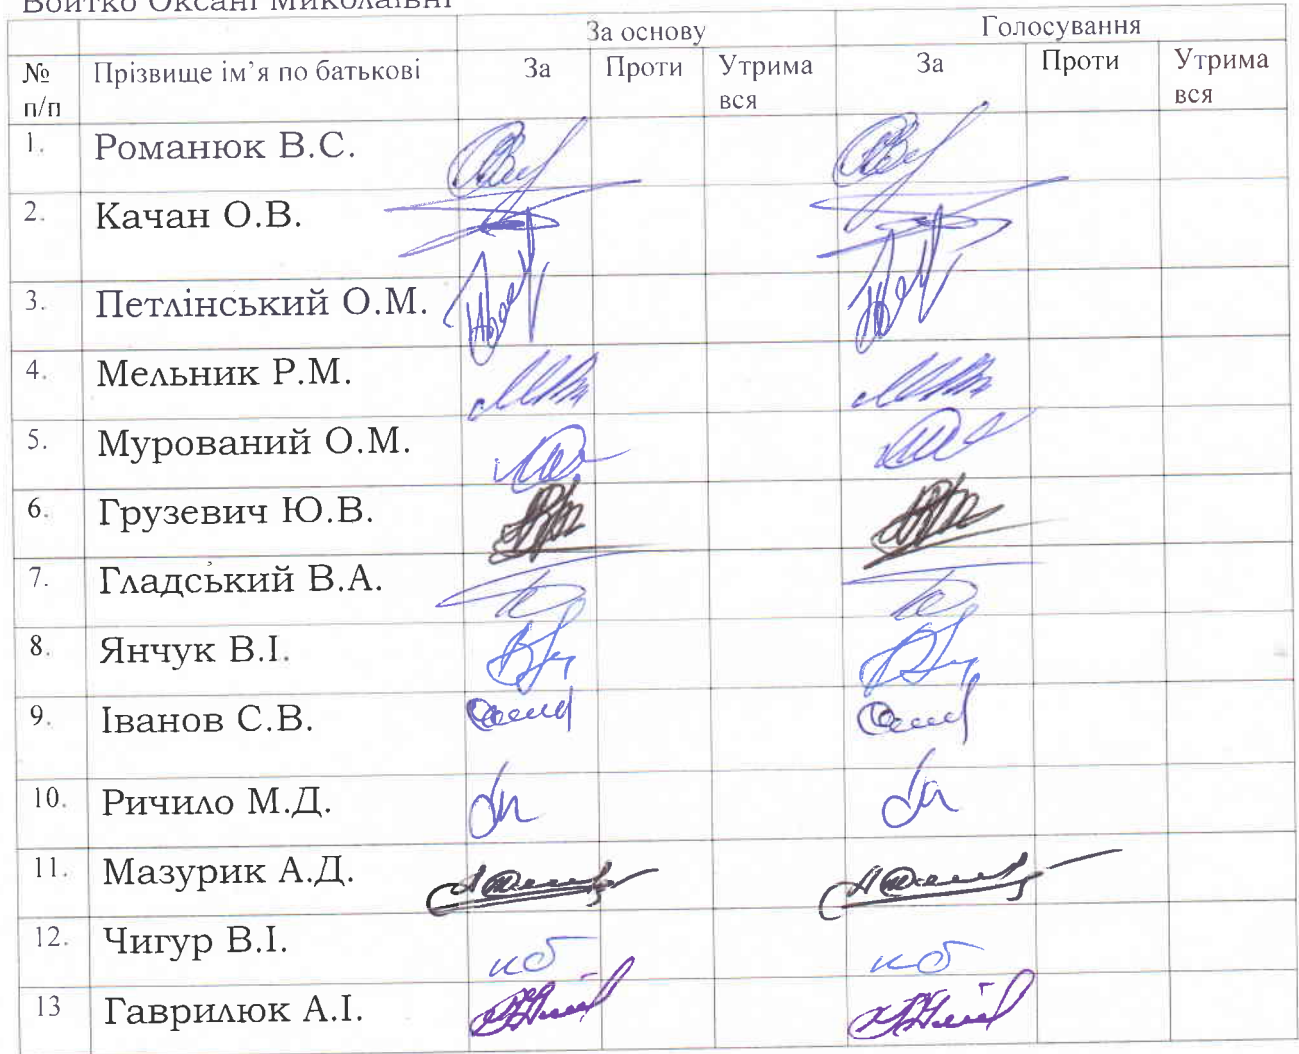 Войтко Оксані Миколаївні
За основу Голосування
№ п/п Прізвище ім’я по батькові За Проти Утрима вся За Проти Утрима вся
1. Романюк В.С.
2. Качан О.В.
3. Петлінський О.М.
4. Мельник Р.М.
5. Мурований О.М.
6. Грузевич Ю.В.
7. Гладський В.А.
8. Янчук В.І.
9. Іванов С.В.
10. Ричило М.Д.
11. Мазурик А.Д.
12. Чигур В.І.
13 Гаврилюк А.І.